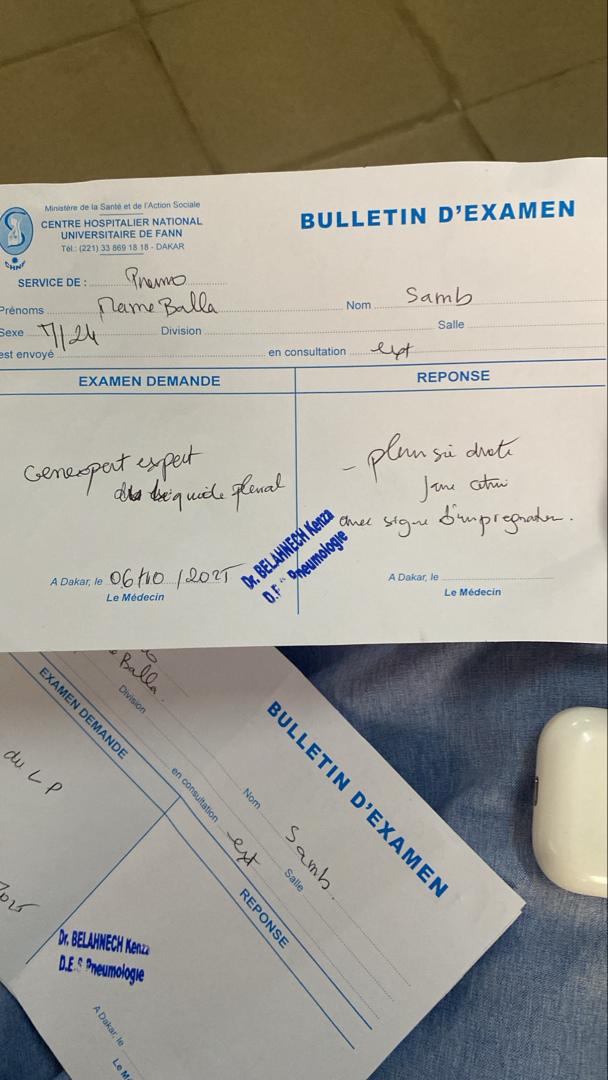 Ministère de la Santé et de l'Action Sociale
CENTRE HOSPITALIER NATIONAL
UNIVERSITAIRE DE FANN
Tél.: (221) 33 869 18 18 - DAKAR
CHNF
BULLETIN D'EXAMEN
SERVICE DE : Pneumo
Prénoms Mame Balla Nom Samb
Sexe /24 Division Salle
est envoyé en consultation ext
EXAMEN DEMANDE
REPONSE
Genexpert expert
du liquide pleural
- pleurésie droite
Jaune citrin
avec signe d'impregnation.
Dr. BELAHNECH Kenza
D.E.S Pneumologie
A Dakar, le 06/10/2025
Le Médecin
A Dakar, le
Le Médecin
BULLETIN D'EXAMEN
Balla
Division
Nom Samb.
Salle
en consultation ext
EXAMEN DEMANDE
REPONSE
du LP
Dr. BELAHNECH Kenza
D.E.S Pneumologie
A Dakar, le
Le M